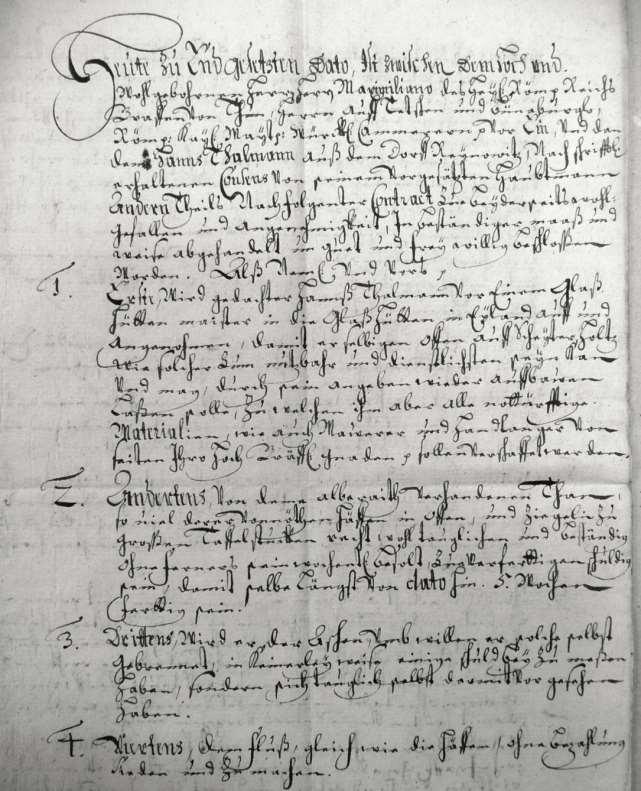 Heute zu End gesetzten Dato, ist zwischen dem Hoch und
Wohlgebohrnen Herrn Herrn Maximiliano des Heyl: Röm: Reichs
Graffen von Thun, Herrn auff Tetschen und
Röm: Kay: Mayt: Würckl: Cammerern, p vor Ein, Und dan
dem Hanns Thalmann auß dem Dorff Reynowitz, Nach schrifftl:
erhaltenen Consens von seinem vorgesetzten Haubtmann
Andern Theils Nachfolgenter Contract zue beyderseits wohl-
gefallen und Angenehmigkeit, In beständiger maaß und
weise abgehandelt im guet und freywillig beschlossen
Worden. Alß Neml: Und Vors,
1. Erste, Wird gedachter Hannß Thalmann vor Einem Glaß
Hütten maister in die Glaß Hütten in Eyland auff und
Angenohmen, damit er selbigen Offen auff Scheyter Holtz
wie solcher zum nutzbahr und dienstlichsten seyn kan
Und mag, durch sein angeben wieder auffbawen
Laßen solle, Zu welchen ihm aber alle notturfftige
Materialien, wie auch Mawerer und Handlanger von
seiten Ihro Hoch Gräffl: Gnaden p sollen Verschaffet werden.
2. Andertens, Von deme alberaith verhandenen Than,
so viel derer Vonnöthen Häffen in Offen, und Ziegel zu
großen Taffelstucken recht wohl tauglichen und beständig
ohne ferners sein wochentl: besolt, zu verfertigen schuldig
sein, damit selbe Längst von dato hin. 5. Wochen
ferttig sein.
3. Drittens, Wird er, der Aschen Umb willen er solche selbst
gebrennet, in Keinerley weise einige schuld bey zu meßen
Haben, sondern sich tauglich selbst darmit Vorgesehen
Haben.
4. Viertens, dem Fluß, gleich wie die Häffen, ohne bezahlung
Sieden und zu machen.